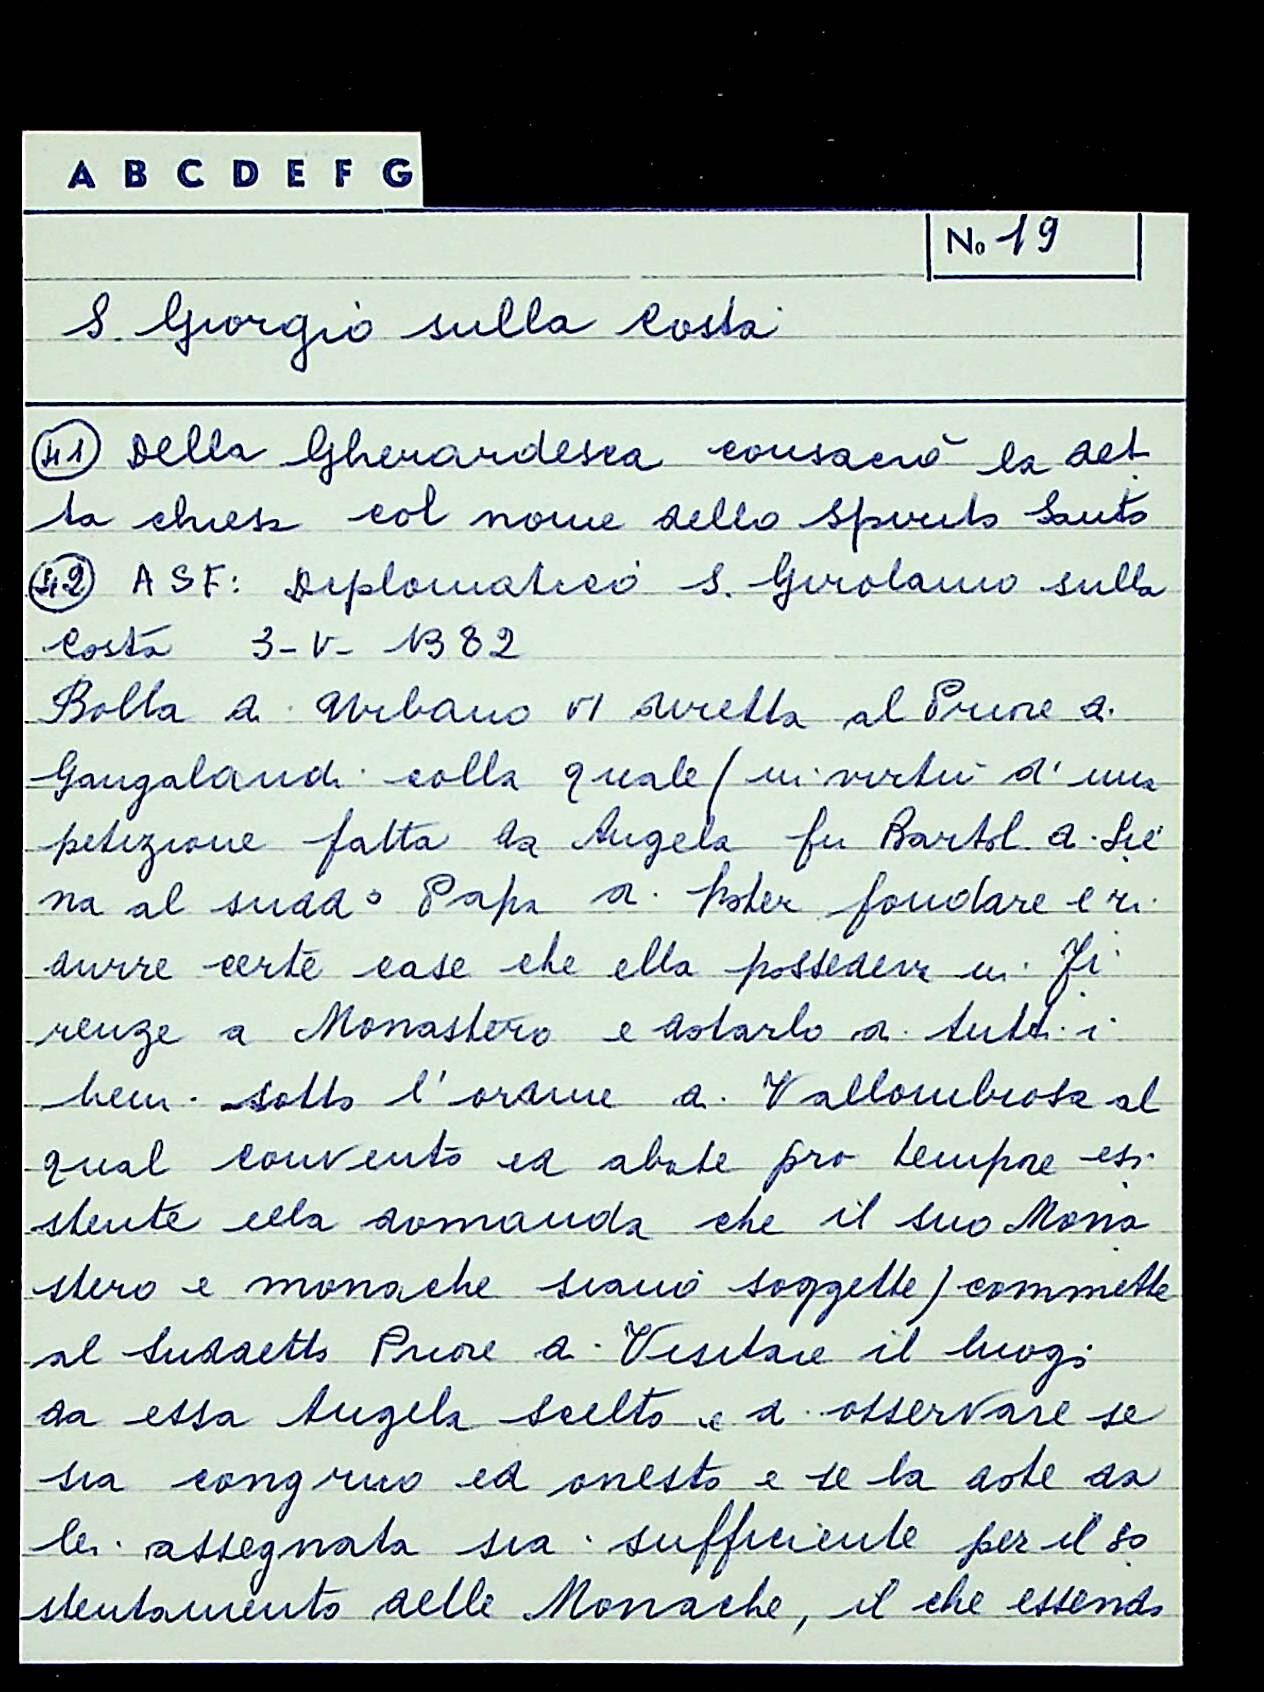 A B C D E F G
No 19
S. Giorgio sulla Costa
41 Della Gherardesca consacrò la det
ta chiesa col nome dello Spirito Santo
42 ASF: Diplomatico S. Girolamo sulla
Costa 3-V-1382
Bolla di Urbano VI diretta al Priore di
Gangalandi colla quale (in virtù d'una
petizione fatta da Angela fu Bartol. di Sie
na al sudd° Papa di poter fondare e ri
durre certe case che ella possedeva in Fi
renze a Monastero e dotarlo di tutti i
beni sotto l'ordine di Vallombrosa al
qual convento ed abate pro tempore esi
stente ella domanda che il suo Mona
stero e monache siano soggette) commette
al suddetto Priore di Visitare il luogo
da essa Angela scelto e di osservare se
sia congruo ed onesto e se la dote da
lei assegnata sia sufficiente per il so
stentamento delle Monache, il che essendo